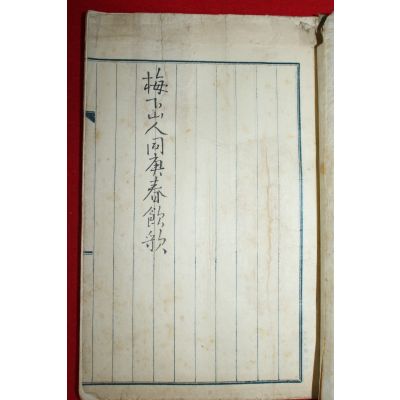 梅下山人同庚春飮歌